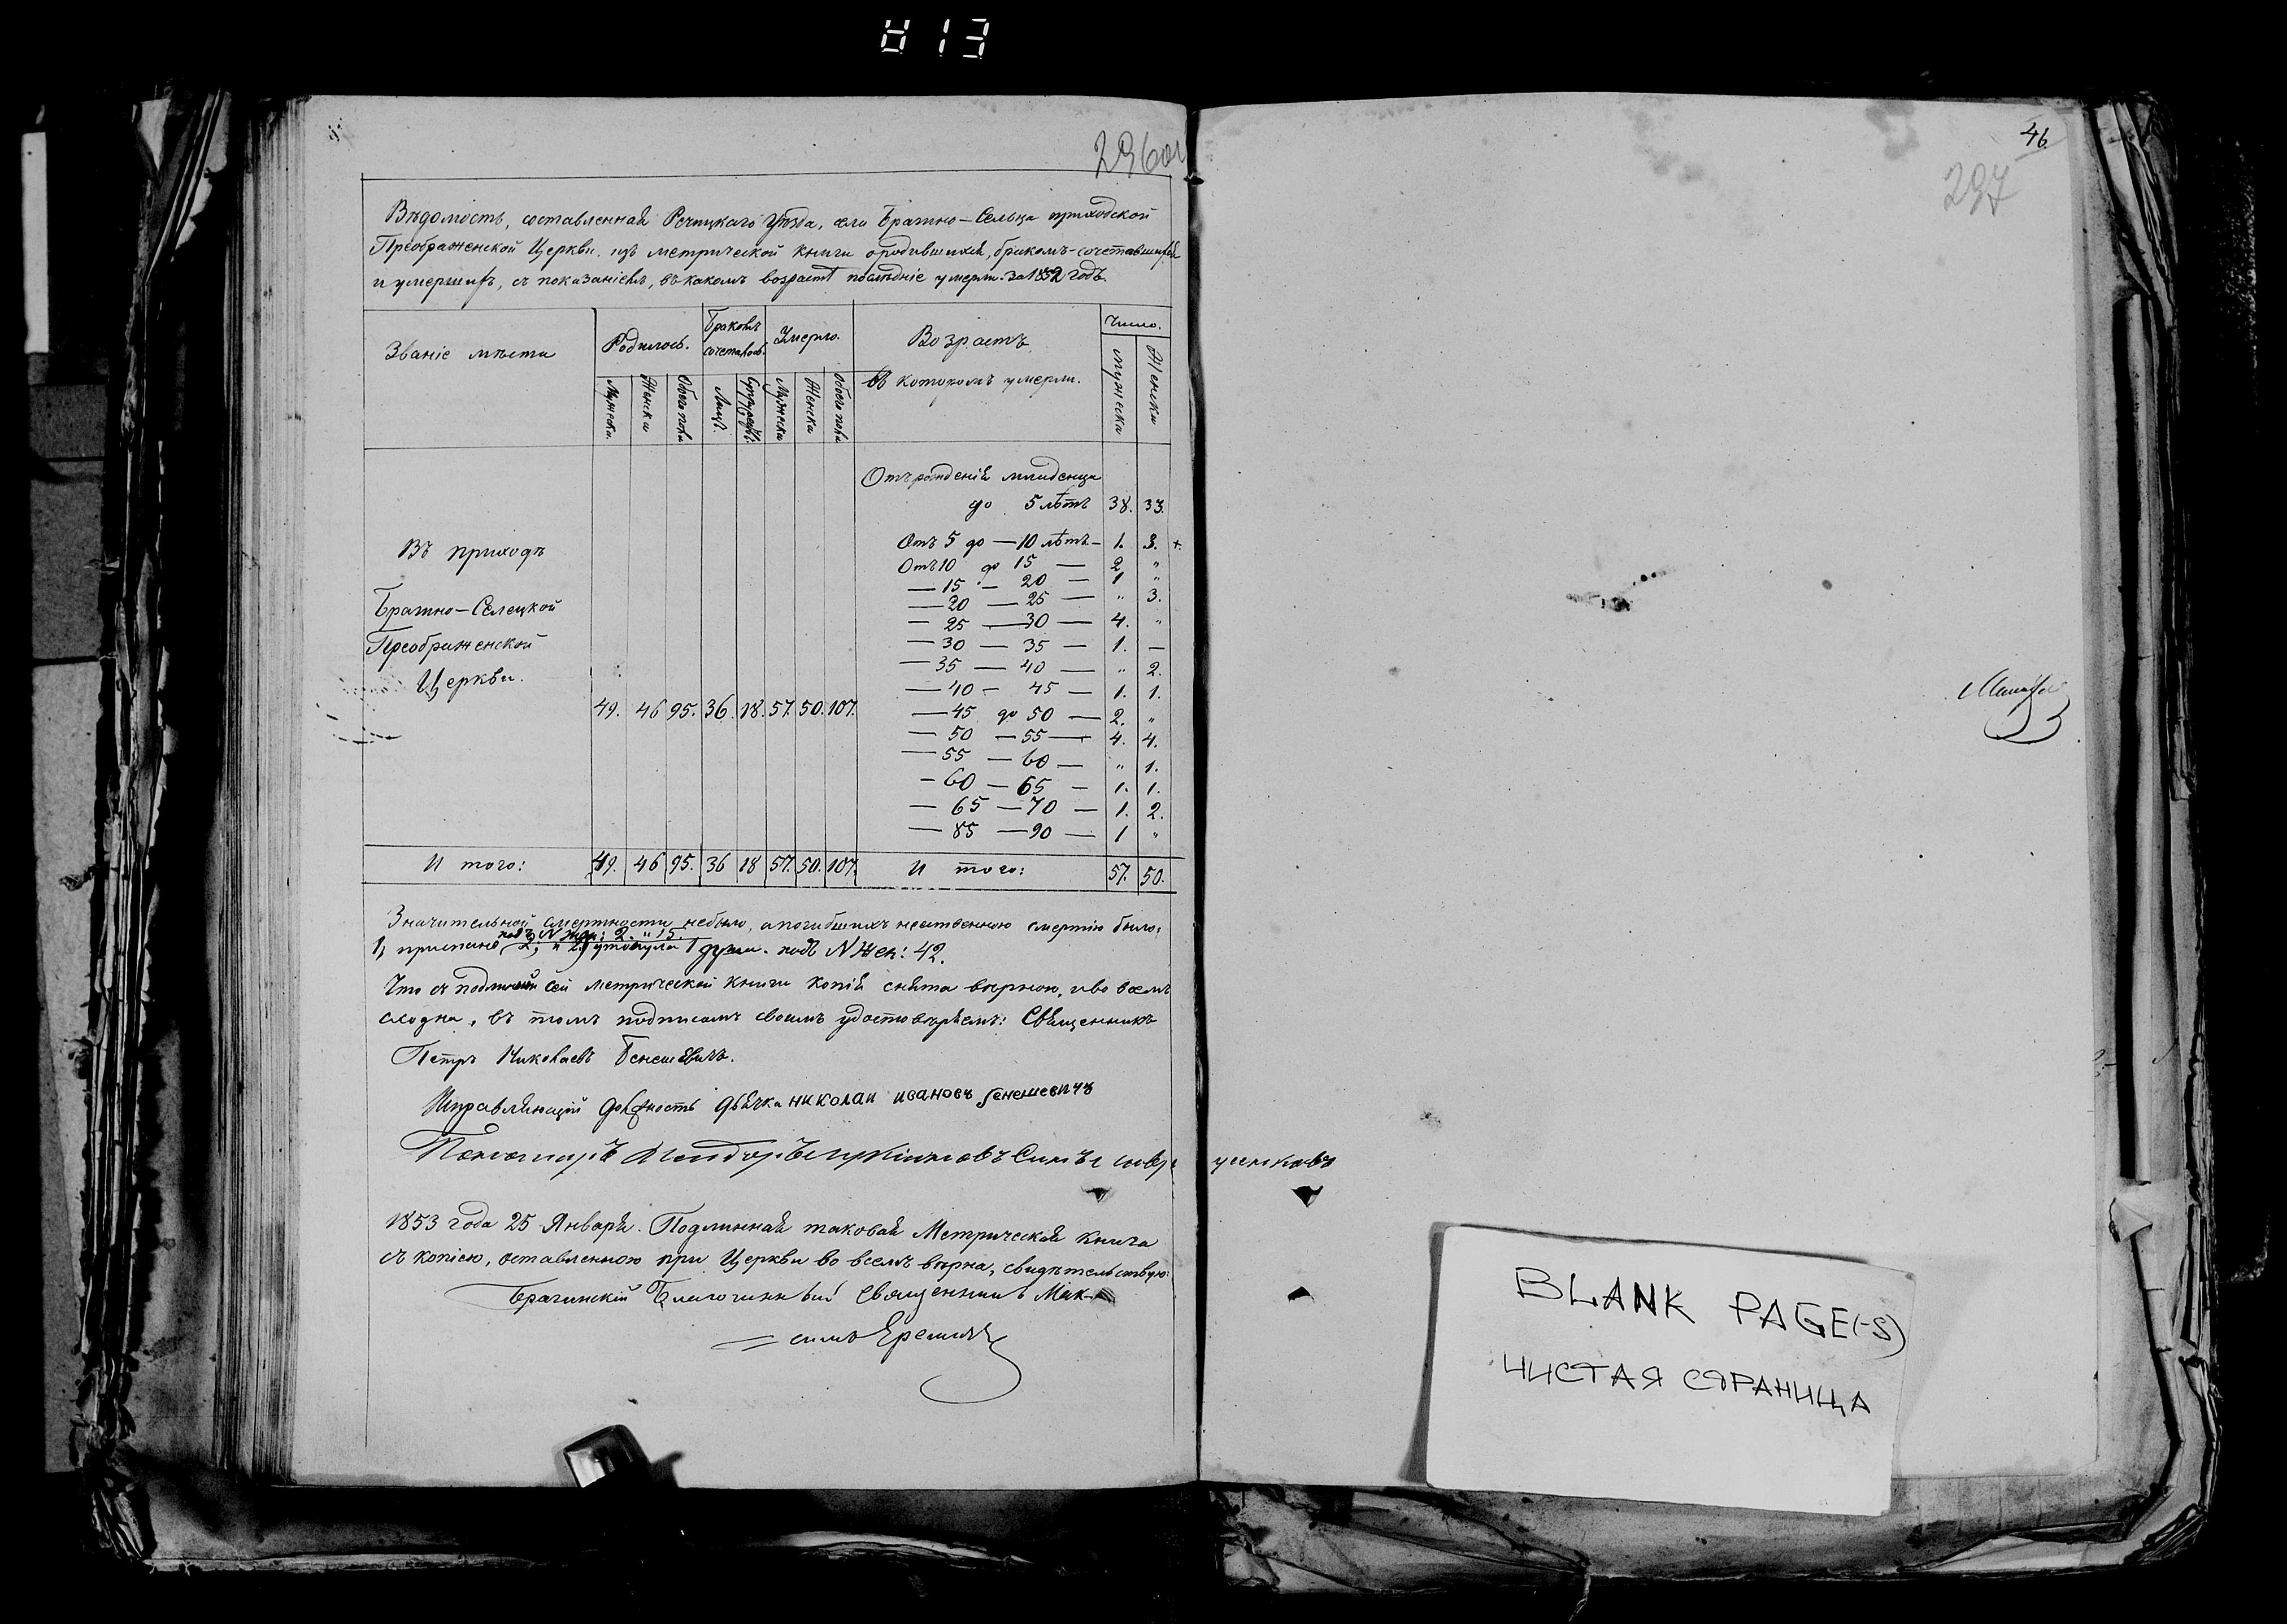 296об
Вѣдомость, составленная Речицкаго Уѣзда, села Бражно-Сельца приходской
Преображенской Церкви, изъ метрической книги о родившихся, бракомъ-сочетавшихся
и умершихъ, съ показаніемъ, въ какомъ возрастѣ послѣдніе умерли. За 1852 годъ.
Званіе мѣста
Родилось.
Бракомъ сочеталось.
Умерло.
Возрастъ
въ которомъ умерли.
Число.
Мужеска.
Женска
Обоего пола
Лицъ.
Супружествъ.
Мужеска
Женска
Обоего пола
Мужеска
Женска
Отъ рожденія младенца
до 5 лѣтъ 38. 33.
Въ приходѣ
Бражно-Селецкой
Преображенской
Церкви.
49. 46 95. 36. 18. 57. 50. 107.
Отъ 5 до — 10 лѣтъ — 1. 3. +
Отъ 10 до 15 — 2 "
— 15 — 20 — 1 "
— 20 — 25 — " 3.
— 25 — 30 — 4. "
— 30 — 35 — 1. —
— 35 — 40 — " 2.
— 40 — 45 — 1. 1.
— 45 до 50 — 2. "
— 50 — 55 — 4. 4.
— 55 — 60 — " 1.
— 60 — 65 — 1. 1.
— 65 — 70 — 1. 2.
— 85 — 90 — 1 "
И того: 49. 46 95. 36 18 57. 50. 107. И того: 57. 50.
Значительной смертности небыло, а погибшихъ неественною смертію было:
подъ N Жен: 2. " 15
1, приспано 2, утонула 1 душа. подъ N Жен: 42.
Что съ подлинной сей метрической книги копія снята вѣрною, и во всемъ
сходна, въ томъ подписомъ своимъ удостовѣряемъ: Священникъ
Петръ Николаевъ Бенешевичъ.
Исправляющій должность дьячка николаи ивановъ бенешевичъ
Пономаръ
1853 года 25 Января. Подлинная таковая Метрическая книга
съ копіею, оставленною при Церкви во всемъ вѣрна, свидѣтельствую:
Брагинскій Благочинный Священникъ Мак-
симъ
46
297
BLANK PAGE(-S)
ЧИСТАЯ СТРАНИЦА